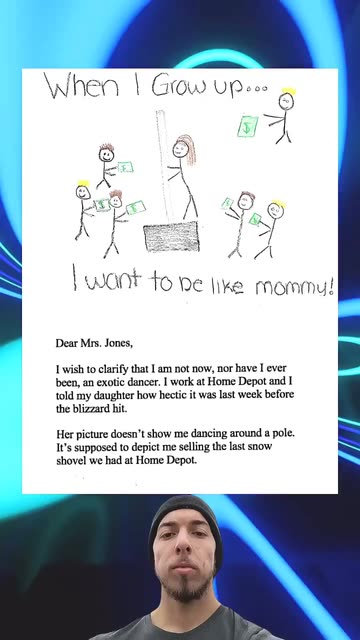 When I Grow up...
$
$
$
$
$
$
I want to be like mommy!
Dear Mrs. Jones,
I wish to clarify that I am not now, nor have I ever
been, an exotic dancer. I work at Home Depot and I
told my daughter how hectic it was last week before
the blizzard hit.
Her picture doesn't show me dancing around a pole.
It's supposed to depict me selling the last snow
shovel we had at Home Depot.